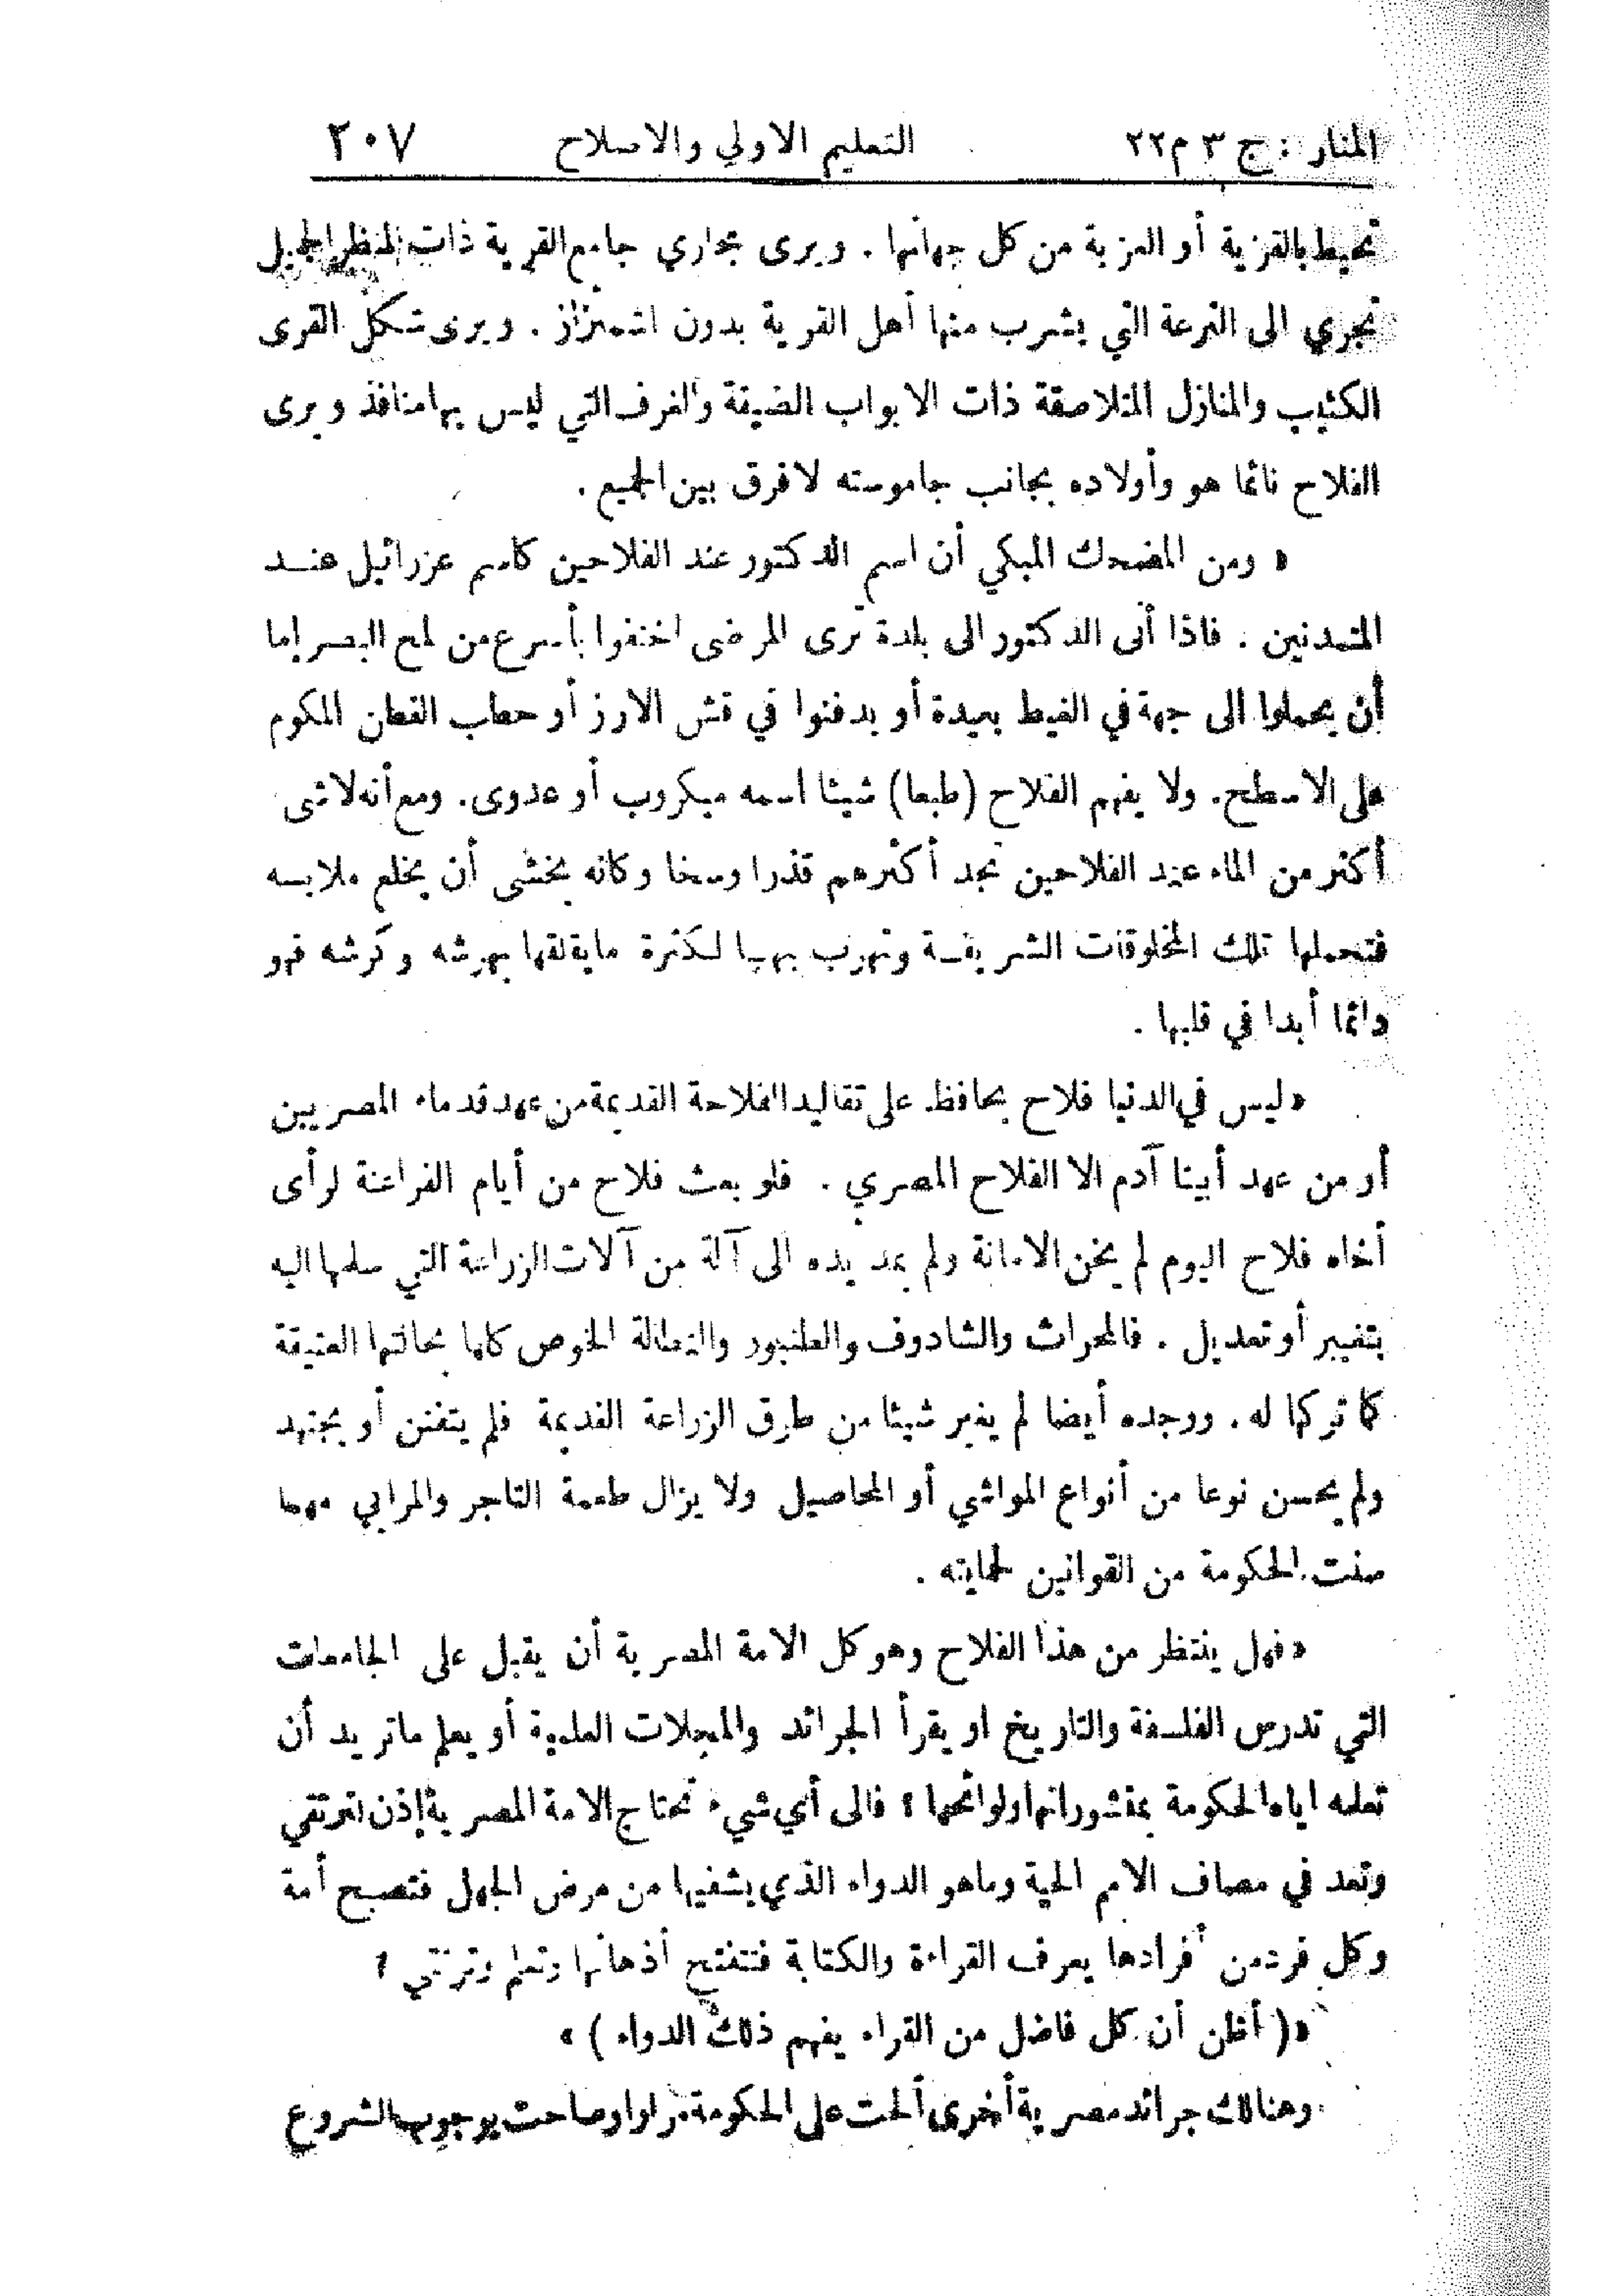 المنار : ج ٣ م٢٢ التعليم الاولي والاصلاح ٢٠٧
تحيط بالقرية أو العزبة من كل جهاتها . ويرى مجاري جامع القرية ذات المنظر الجميل
تجري الى الترعة التي يشرب منها أهل القرية بدون اشمئزاز . ويرى شكل القرى
الكئيب والمنازل المتلاصقة ذات الابواب الضيقة والغرف التي ليس بها منافذ ويرى
الفلاح نائما هو وأولاده بجانب جاموسته لا فرق بين الجميع .
« ومن المضحك المبكي أن اسم الدكتور عند الفلاحين كاسم عزرائيل عند
المتمدنين . فاذا أتى الدكتور الى بلدة ترى المرضى اختفوا بأسرع من لمح البصر إما
أن يحملوا الى جهة في الغيط بعيدة أو يدفنوا في قش الارز أو حطب القطن المكوم
على الاسطح. ولا يفهم الفلاح (طبعا) شيئا اسمه ميكروب أو عدوى. ومع أنه لا شى
أكثر من الماء عند الفلاحين تجد أكثرهم قذرا وسخا وكانه يخشى أن يخلع ملابسه
فتحملها تلك المخلوقات الشريفة وتهرب بها لكثرة ما يقلقها بهرشه وكرشه فهو
دائما أبدا في قلبها .
«ليس في الدنيا فلاح يحافظ على تقاليد الفلاحة القديمة من عهد قدماء المصريين
أو من عهد أبينا آدم الا الفلاح المصري . فلو بعث فلاح من أيام الفراعنة لرأى
أخاه فلاح اليوم لم يخن الامانة ولم يمد يده الى آلة من آلات الزراعة التي سلمها اليه
بتغيير أو تعديل . فالمحراث والشادوف والطنبور والنطالة الخوص كلها بحالتها العتيقة
كما تركها له . ووجده أيضا لم يغير شيئا من طرق الزراعة القديمة فلم يتفنن أو يجتهد
ولم يحسن نوعا من أنواع المواشي أو المحاصيل ولا يزال طعمة التاجر والمرابي مهما
سنت الحكومة من القوانين لحمايته .
«فهل ينتظر من هذا الفلاح وهو كل الامة المصرية أن يقبل على الجامعات
التي تدرس الفلسفة والتاريخ او يقرأ الجرائد والمجلات العلمية أو يعلم ما تريد أن
تعلمه اياه الحكومة بمنشوراتها ولوائحها ؟ فالى أي شيء تحتاج الامة المصرية إذن لترتقي
وتعد في مصاف الامم الحية وما هو الدواء الذي يشفيها من مرض الجهل فتصبح أمة
وكل فرد من أفرادها يعرف القراءة والكتابة فتتفتح أذهانها وتعلم وترتقي ؟
«( أظن أن كل فاضل من القراء يفهم ذلك الدواء ) »
وهنالك جرائد مصرية أخرى ألحت على الحكومة مرارا وصاحت بوجوب الشروع